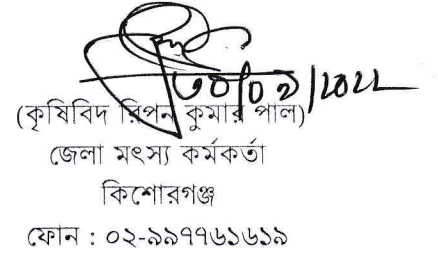 ৩০/০১/২০২২
(কৃষিবিদ রিপন কুমার পাল)
জেলা মৎস্য কর্মকর্তা
কিশোরগঞ্জ
ফোন : ০২-৯৯৭৭৬১৬১৯